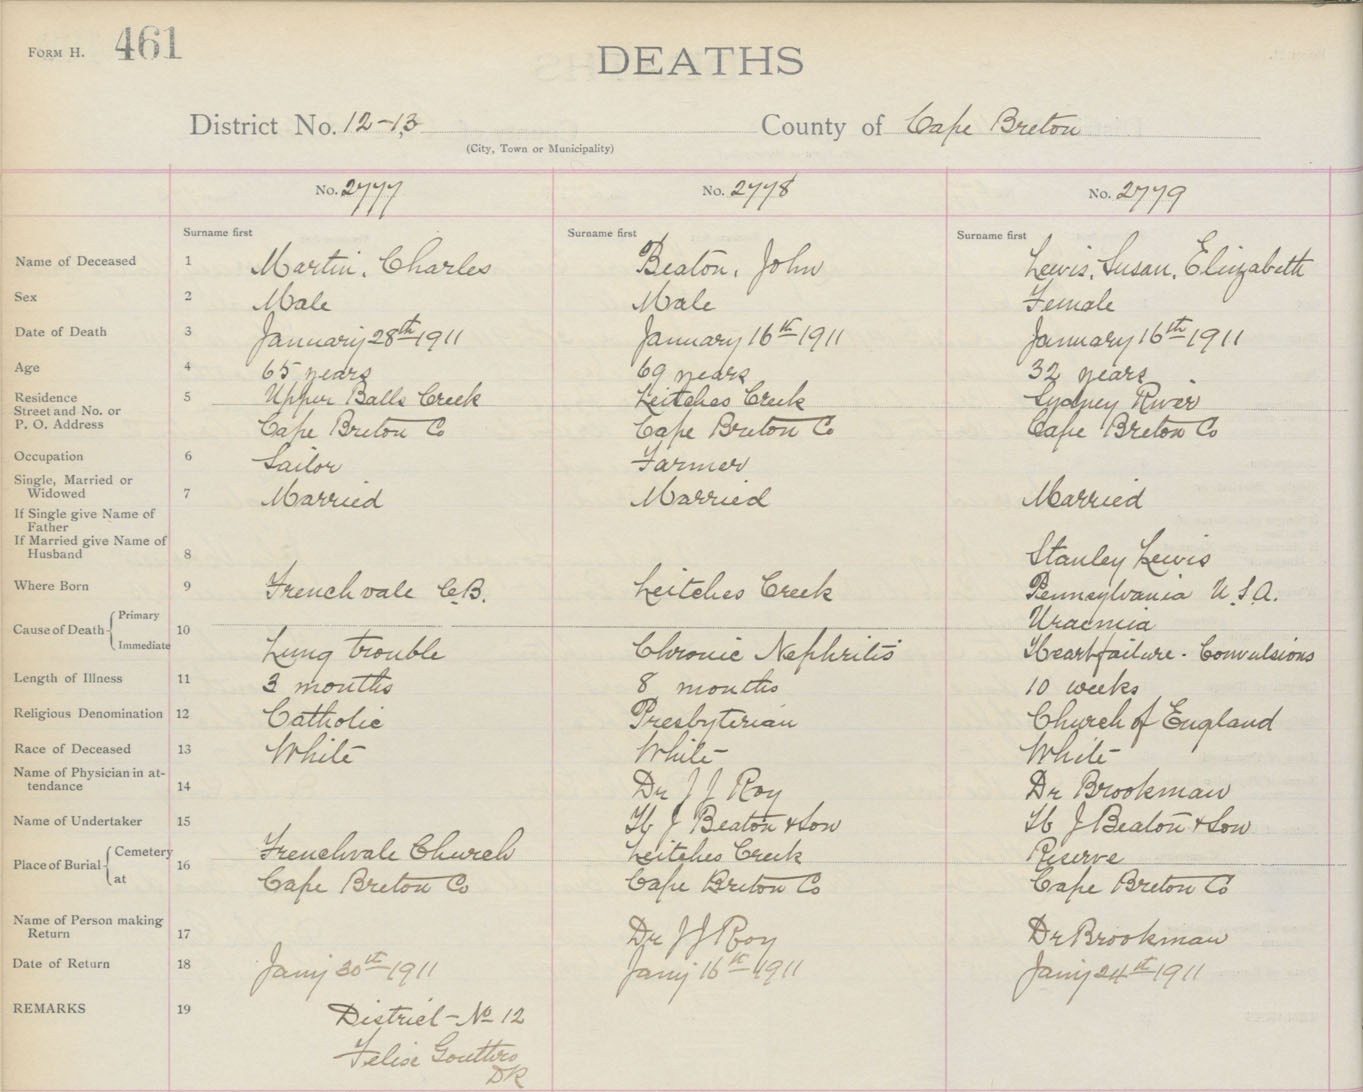 FORM H. 461
DEATHS
District No. 12-13 County of Cape Breton
(City, Town or Municipality)
No. 2777 No. 2778 No. 2779
Surname first Surname first Surname first
Name of Deceased 1 Martin, Charles Beaton, John Lewis, Susan, Elizabeth
Sex 2 Male Male Female
Date of Death 3 January 28th 1911 January 16th 1911 January 16th 1911
Age 4 65 years 69 years 32 years
Residence 5 Upper Balls Creek Leitches Creek Sydney River
Street and No. or
P. O. Address Cape Breton Co Cape Breton Co Cape Breton Co
Occupation 6 Sailor Farmer
Single, Married or
Widowed 7 Married Married Married
If Single give Name of
Father
If Married give Name of
Husband 8 Stanley Lewis
Where Born 9 Frenchvale C.B. Leitches Creek Pennsylvania U.S.A.
Cause of Death Primary 10 Uraemia
Immediate Lung trouble Chronic Nephritis Heart failure - Convulsions
Length of Illness 11 3 months 8 months 10 weeks
Religious Denomination 12 Catholic Presbyterian Church of England
Race of Deceased 13 White White White
Name of Physician in at-
tendance 14 Dr J J Roy Dr Brookman
Name of Undertaker 15 J Beaton & Son J Beaton & Son
Place of Burial Cemetery 16 Frenchvale Church Leitches Creek Reserve
at Cape Breton Co Cape Breton Co Cape Breton Co
Name of Person making
Return 17 Dr J J Roy Dr Brookman
Date of Return 18 Jany 30th 1911 Jany 16th 1911 Jany 24th 1911
REMARKS 19 District No 12
Felise Gouthro
DR